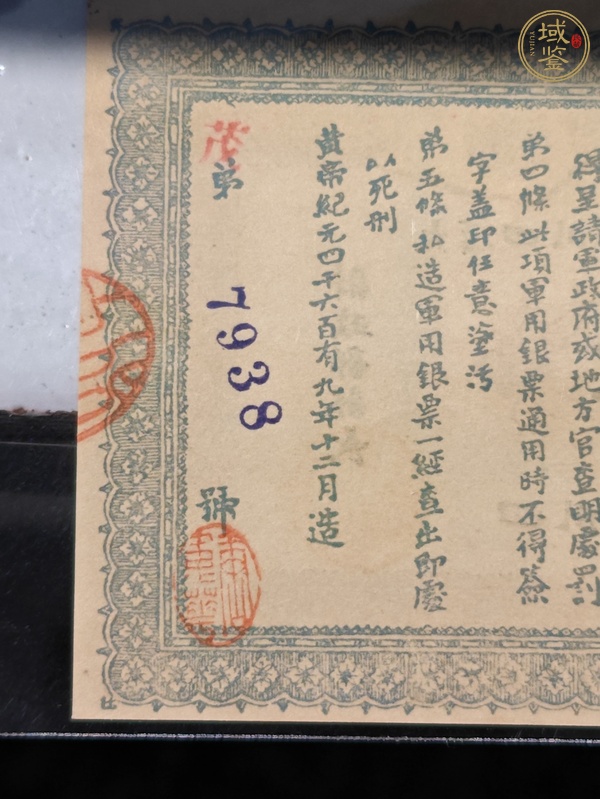 得呈請軍政府或地方官查明處罰
第四條此項軍用銀票通用時不得簽
字蓋印任意塗污
第五條私造軍用銀票一經查出即處
以死刑
黃帝紀元四千六百有九年十二月造
第
7938
號
域鉴
YUJIAN